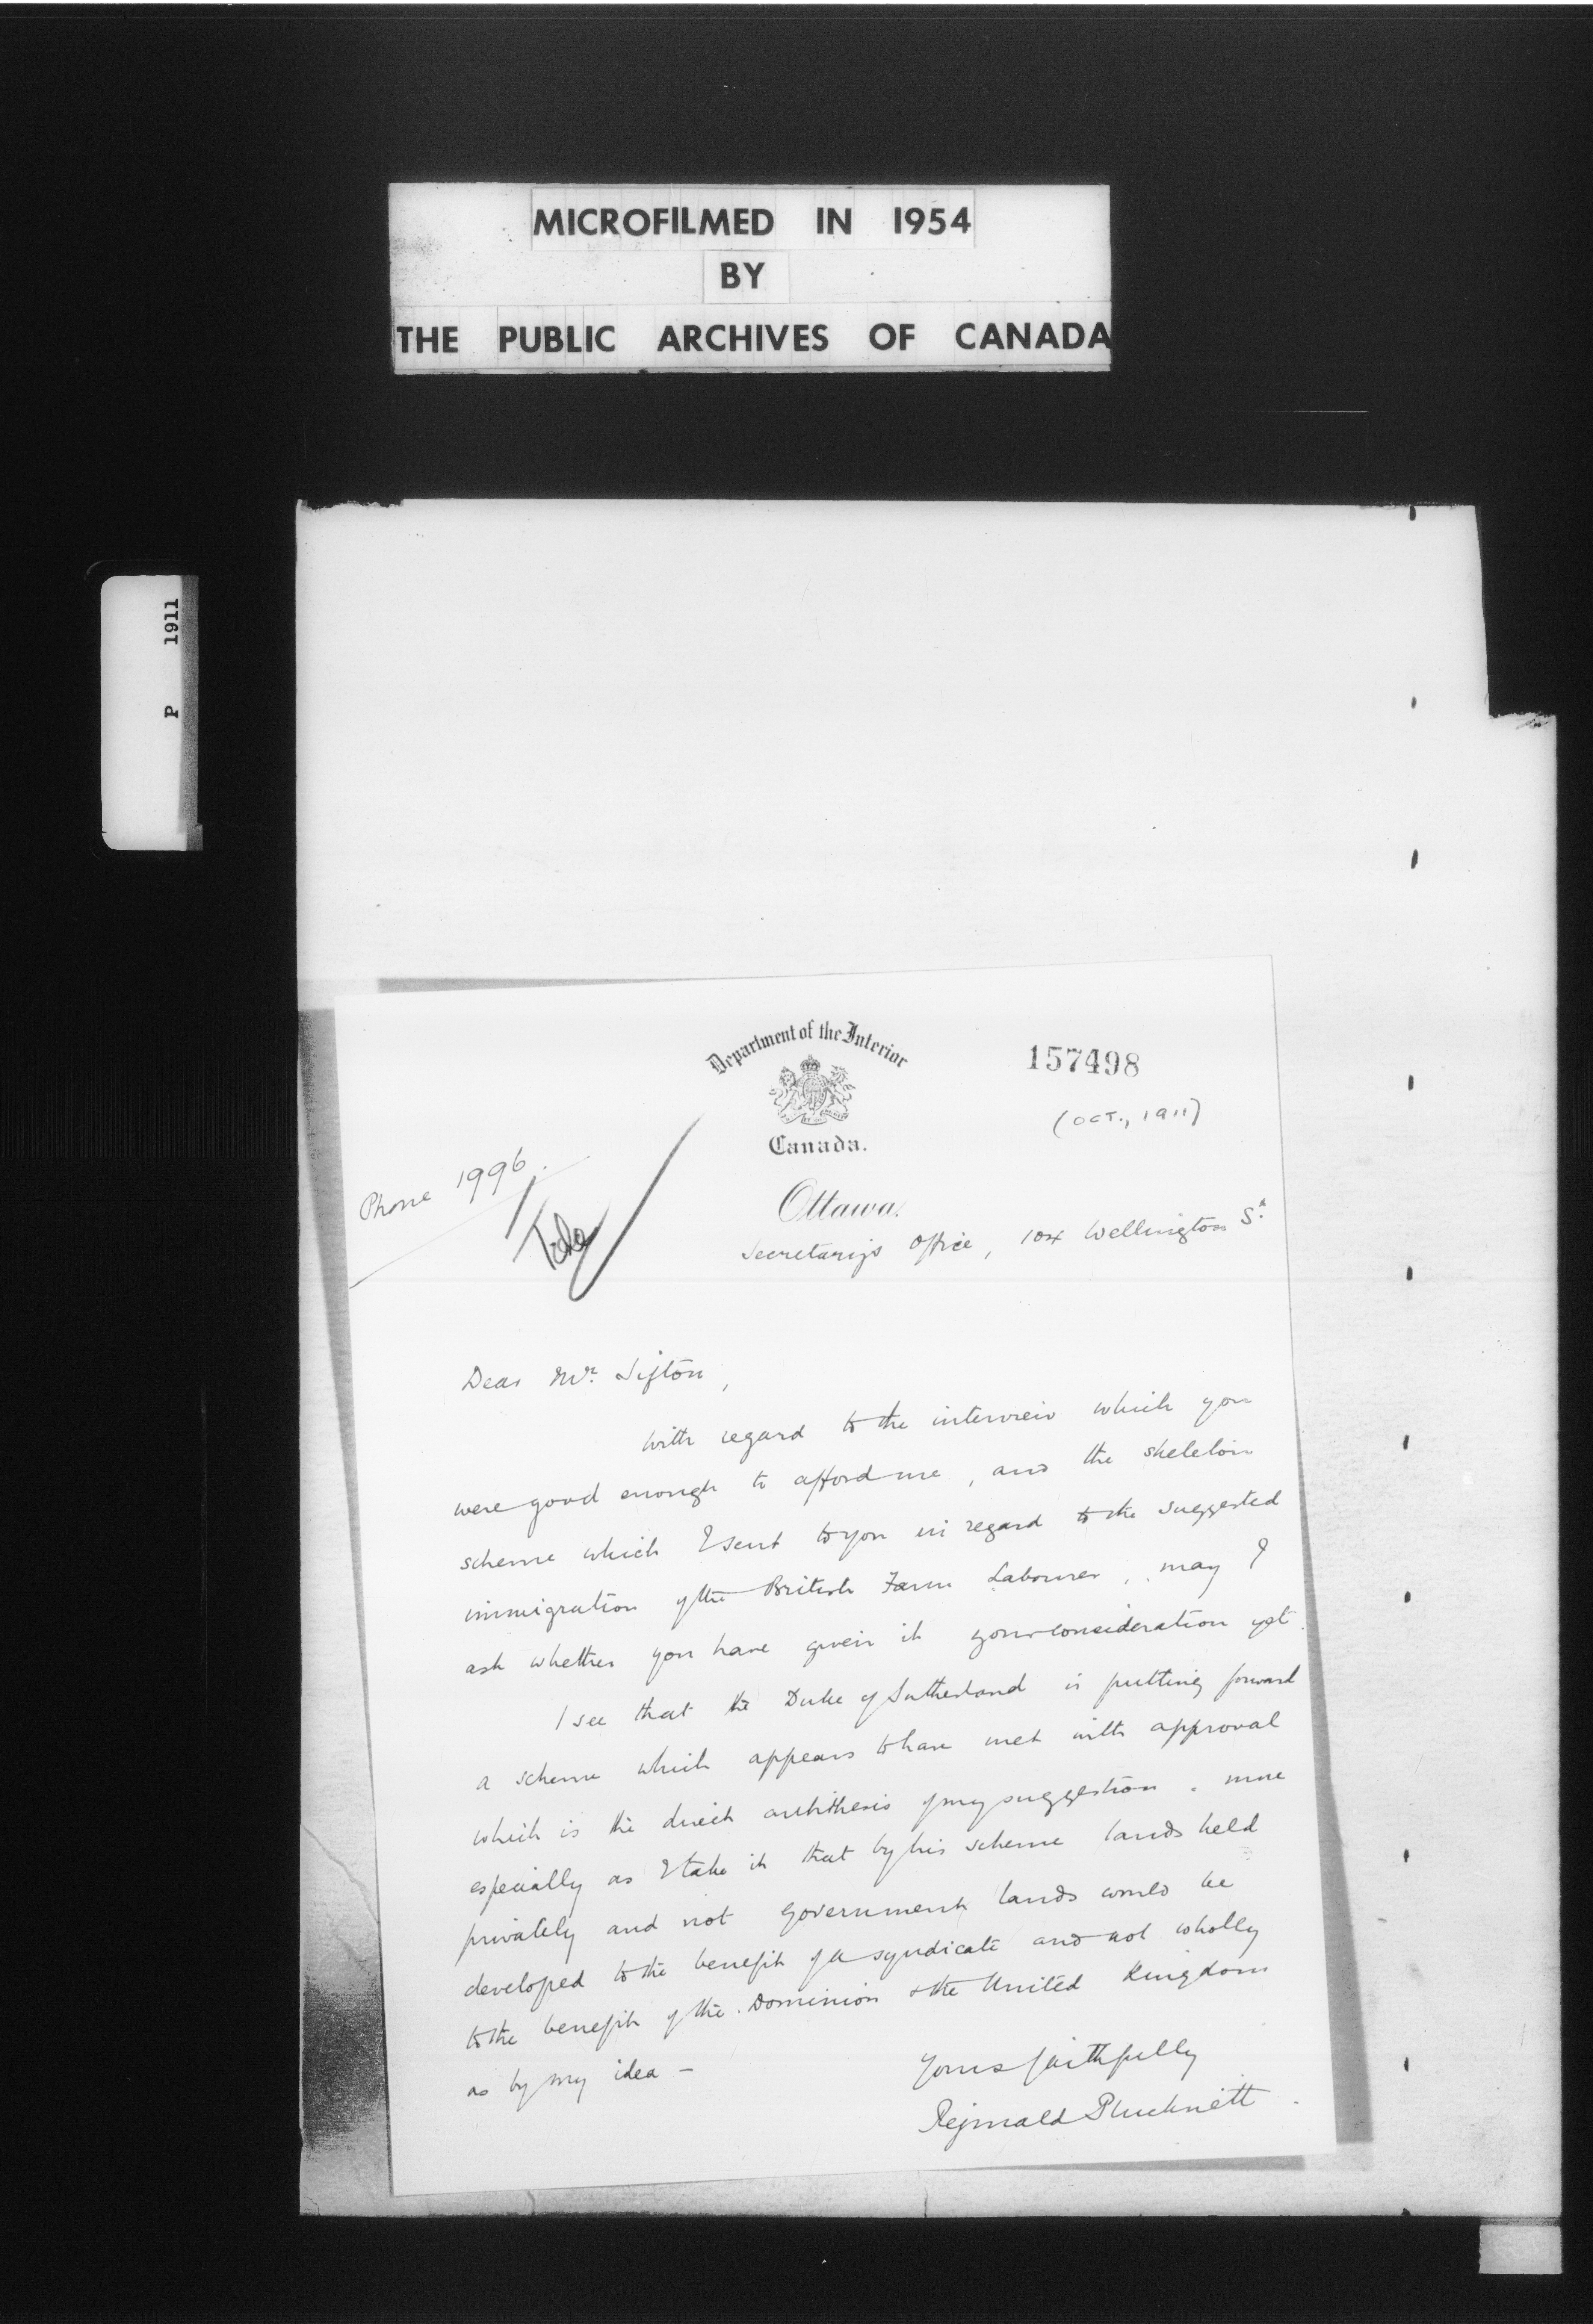 MICROFILMED IN 1954
BY
THE PUBLIC ARCHIVES OF CANADA
P 1911
Department of the Interior
157498
(OCT., 1911)
Canada.
Phone 1996.
Ottawa.
Secretary's Office, 104 Wellington St.
Dear Mr. Sifton,
With regard to the interview which you
were good enough to afford me, and the skeleton
scheme which I sent to you in regard to the suggested
immigration of the British Farm Labourer, may I
ask whether you have given it your consideration yet.
I see that the Duke of Sutherland is putting forward
a scheme which appears to have met with approval
which is the direct antithesis of my suggestion. more
especially as I take it that by his scheme lands held
privately and not Government lands would be
developed to the benefit of a syndicate and not wholly
to the benefit of the Dominion & the United Kingdom
as by my idea —
Yours faithfully
Reginald Plucknett.